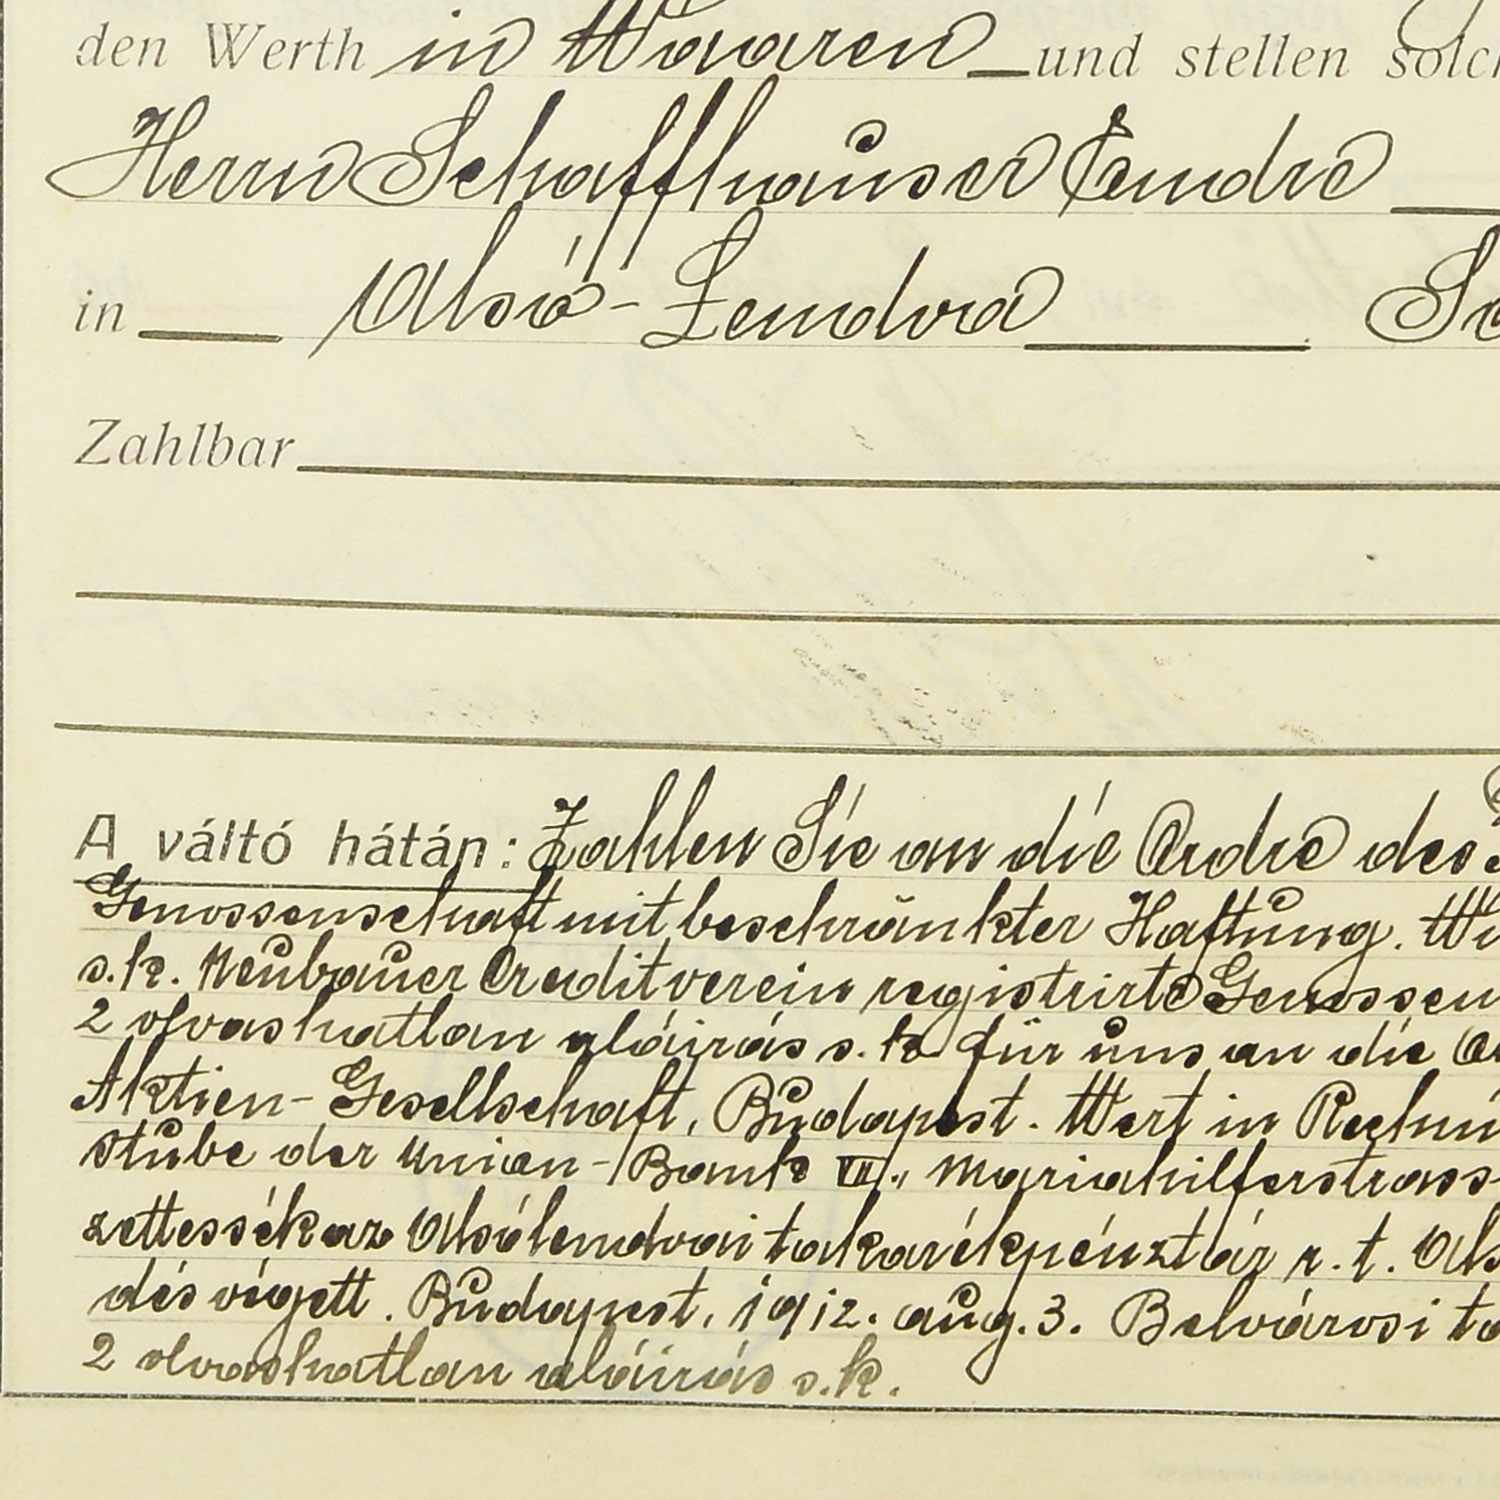 den Werth in Waaren und stellen solch
Herrn Schaffhauser Endre
in Alsó-Lendva
Zahlbar
A váltó hátán: Zahlen Sie an die Ordre des
Genossenschaft mit beschränkter Haftung. Wi
s.k. Neubauer Creditverein registrirte Genossen
2 olvashatlan aláirás s.k. für uns an die Or
Aktien-Gesellschaft, Budapest. Wert in Rechnu
stube der Union-Bank VII., Mariahilferstrass
zettessék az Alsólendvai takarékpénztár r.t. Als
dés végett. Budapest, 1912. aug. 3. Belvárosi ta
2 olvashatlan aláirás s.k.